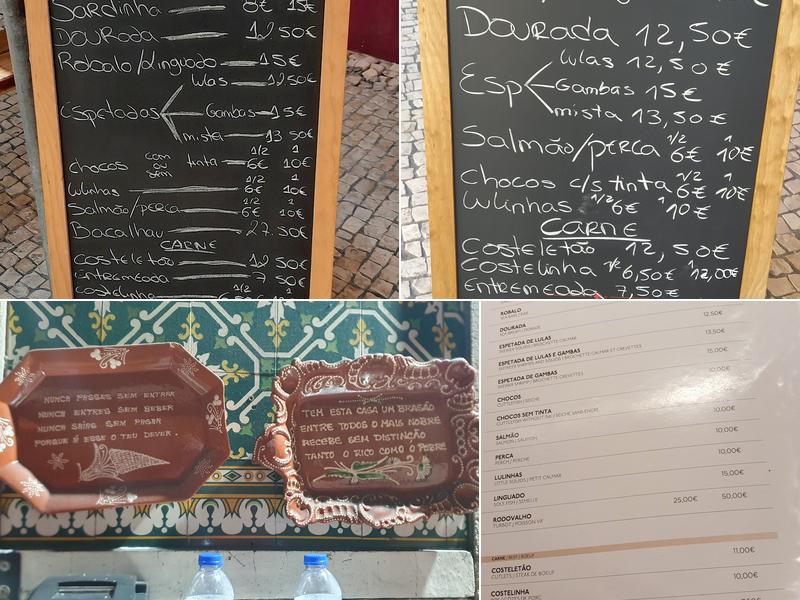 Sardinha 8€ 15€
DOURADA 12 50€
Robalo/Linguado 15€
lulas 12.50€
Espetadas Gambas 15€
mista 13 50€
1/2 1
chocos com ou sem tinta 6€ 10€
1/2 1
Lulinhas 6€ 10€
1/2 1
Salmão/perca 6€ 10€
Bacalhau 27.50€
CARNE
Costeletão 12 50€
Entremeada 7 50€
Costelinha
DOURADA 12,50€
lulas 12,50€
Esp Gambas 15€
mista 13,50€
Salmão/perca 1/2 6€ 1 10€
Chocos c/s tinta 1/2 6€ 1 10€
Lulinhas 1/2 6€ 1 10€
CARNE
Costeletão 12,50€
Costelinha 1/2 6,50€ 1 12,00€
Entremeada 7,50€
NUNCA PASSES SEM ENTRAR
NUNCA ENTRES SEM BEBER
NUNCA SAIAS SEM PAGAR
PORQUE É ESSE O TEU DEVER.
TEM ESTA CASA UM BRASÃO
ENTRE TODOS O MAIS NOBRE
RECEBE SEM DISTINÇÃO
TANTO O RICO COMO O POBRE
ROBALO
SEA BASS / BAR
12,50€
DOURADA
SEA BREAM / DORADE
13,50€
ESPETADA DE LULAS
SKEWER SQUIDS / BROCHETTE CALMAR
15,00€
ESPETADA DE LULAS E GAMBAS
SKEWER SHRIMPS AND SQUIDS / BROCHETTE CALMAR ET CREVETTES
ESPETADA DE GAMBAS
SKEWER SHRIMP / BROCHETTE CREVETTES
10,00€
CHOCOS
CUTTLEFISH / SEICHE
10,00€
CHOCOS SEM TINTA
CUTTLEFISH WITHOUT INK / SEICHE SANS ENCRE
10,00€
SALMÃO
SALMON / SAUMON
10,00€
PERCA
PERCH / PERCHE
10,00€
LULINHAS
LITTLE SQUIDS / PETIT CALMAR
15,00€
LINGUADO
SOLE FISH / SEMELLE
25,00€ 50,00€
RODOVALHO
TURBOT / POISSON VIF
CARNE / BEEF / BOEUF
11,00€
COSTELETÃO
CUTLETS / STEAK DE BOEUF
10,00€
COSTELINHA